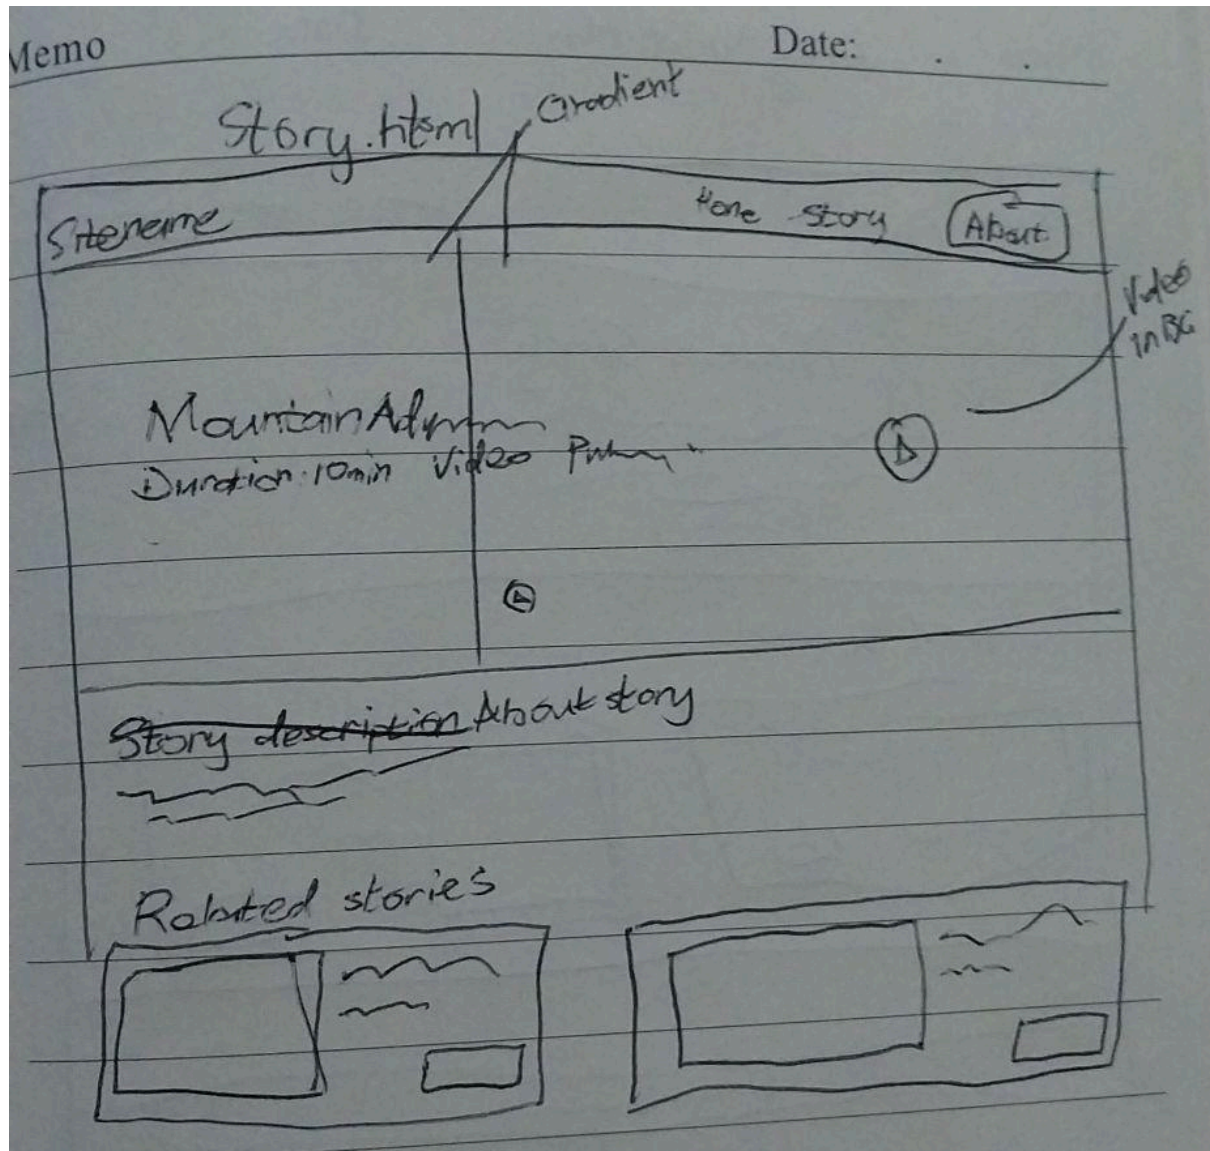 Memo Date:
Story.html Gradient
Sitename Home Story About
Video
in BG
Mountain
Duration 10min Video
Story description About story
Related stories